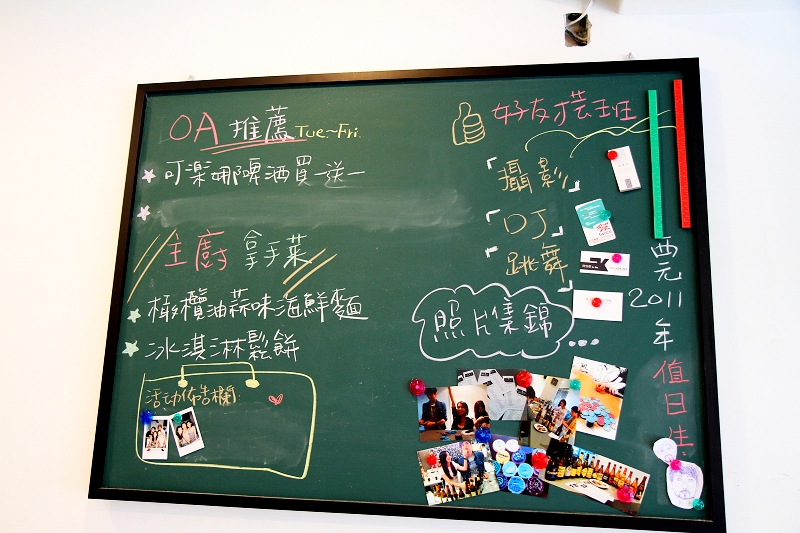 OA 推薦 Tue.~Fri.
可樂娜啤酒買一送一
主廚拿手菜
橄欖油蒜味海鮮麵
冰淇淋鬆餅
活动佈告欄:
好友才芸班
「攝影」
「DJ」
「跳舞」
照片集錦...
西元2011年值日生